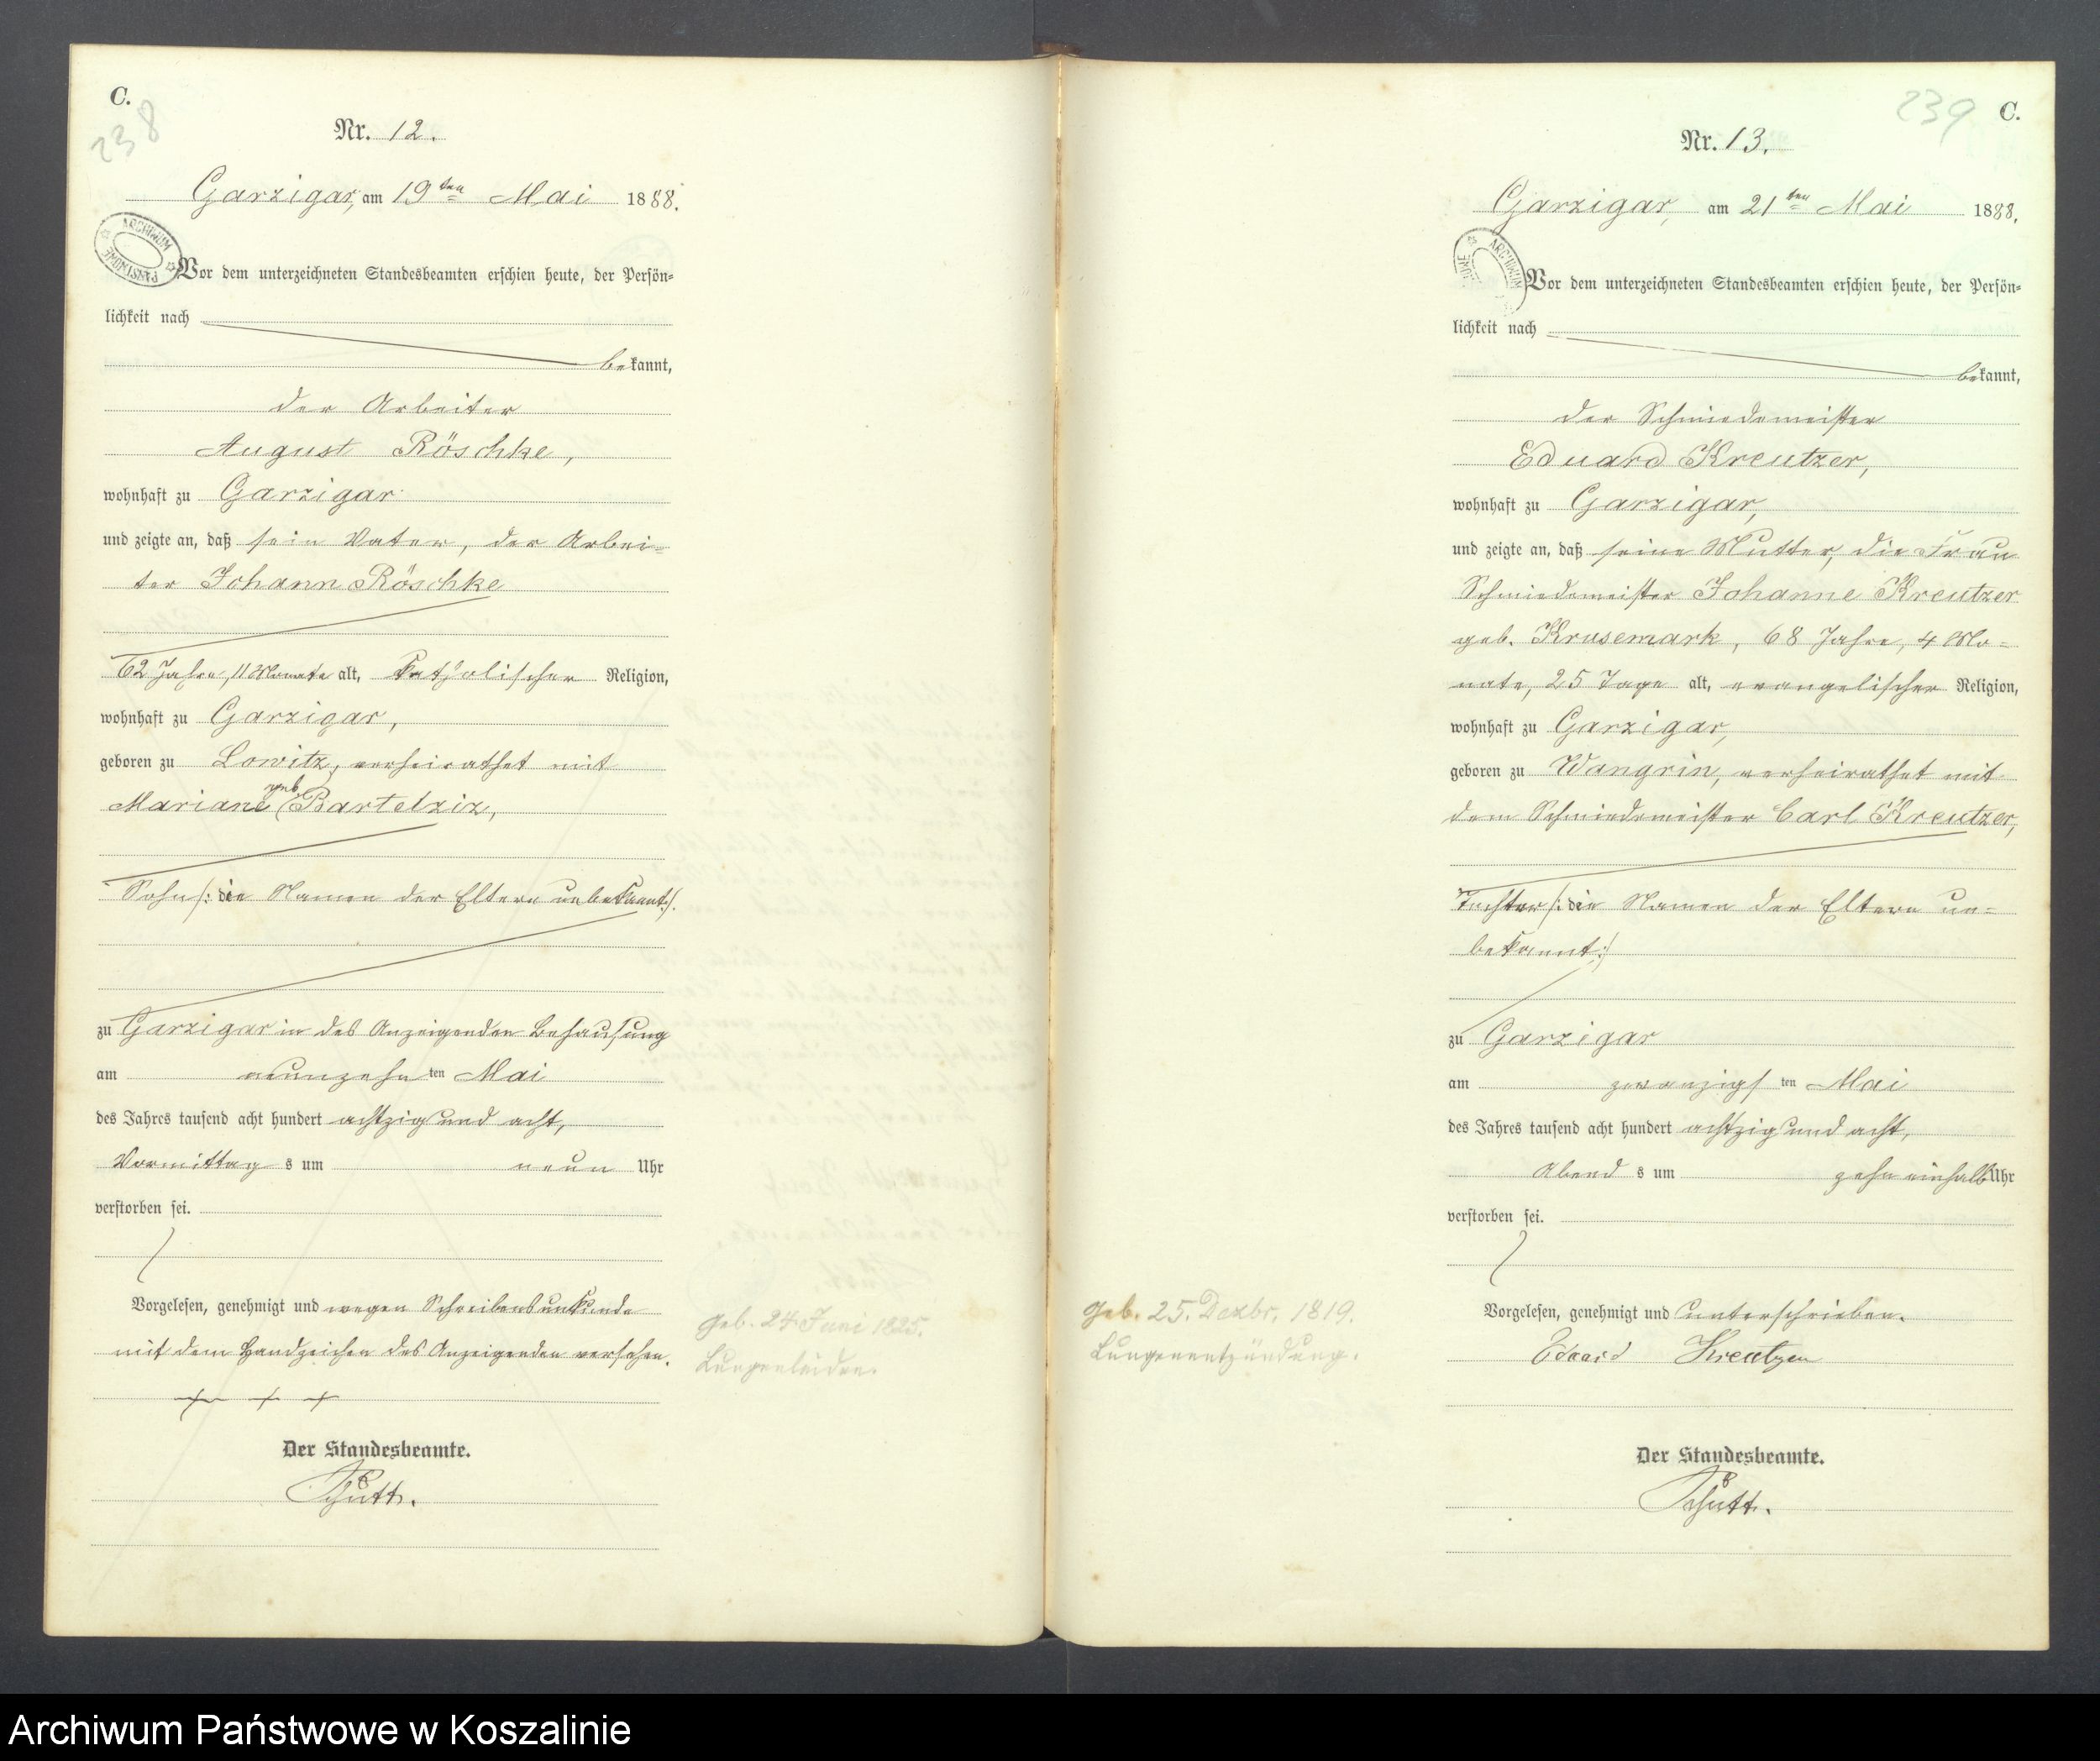 C.
238
Nr. 12.
Garzigar, am 19ten Mai 1888.
ARCHIWUM PAŃSTWOWE
Vor dem unterzeichneten Standesbeamten erschien heute, der Persön=
lichkeit nach
bekannt,
der Arbeiter
August Röschke,
wohnhaft zu Garzigar
und zeigte an, daß sein Vater, der Arbei=
ter Johann Röschke
62 Jahre, 11 Monate alt, katholischer Religion,
wohnhaft zu Garzigar,
geboren zu Lowitz, verheirathet mit
Mariane geb. Bartelziz,
Sohn /: die Namen der Eltern unbekannt :/.
zu Garzigar in des Anzeigenden Behausung
am neunzehnten Mai
des Jahres tausend acht hundert achtzig und acht,
Vormittags um neun Uhr
verstorben sei.
Vorgelesen, genehmigt und wegen Schreibensunkunde
mit dem Handzeichen des Anzeigenden versehen.
+ + +
Der Standesbeamte.
Schütt.
geb. 24. Juni 1825.
Lungenleiden.
239
C.
Nr. 13.
Garzigar, am 21ten Mai 1888.
ARCHIWUM
Vor dem unterzeichneten Standesbeamten erschien heute, der Persön=
lichkeit nach
bekannt,
der Schmiedemeister
Eduard Kreutzer,
wohnhaft zu Garzigar,
und zeigte an, daß seine Mutter, die Frau
Schmiedemeister Johanne Kreutzer
geb. Krusemark, 68 Jahre, 4 Mo=
nate, 25 Tage alt, evangelischer Religion,
wohnhaft zu Garzigar,
geboren zu Wangrin, verheirathet mit
dem Schmiedemeister Carl Kreutzer,
Tochter /: die Namen der Eltern un=
bekannt :/
zu Garzigar
am zwanzigsten Mai
des Jahres tausend acht hundert achtzig und acht,
Abends um zehn einhalb Uhr
verstorben sei.
Vorgelesen, genehmigt und unterschrieben.
Eduard Kreutzer
Der Standesbeamte.
Schütt.
geb. 25. Dezbr. 1819.
Lungenentzündung.
Archiwum Państwowe w Koszalinie